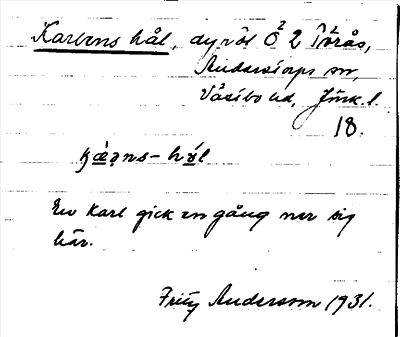 Karlens hål, dyhöl Ö 2 Törås,
Anderstorps sn,
Västbo hd, Jönk. l.
18.
kǽəns-hʉ́l
En karl gick en gång ner sig
här.
Fritz Andersson 1931.